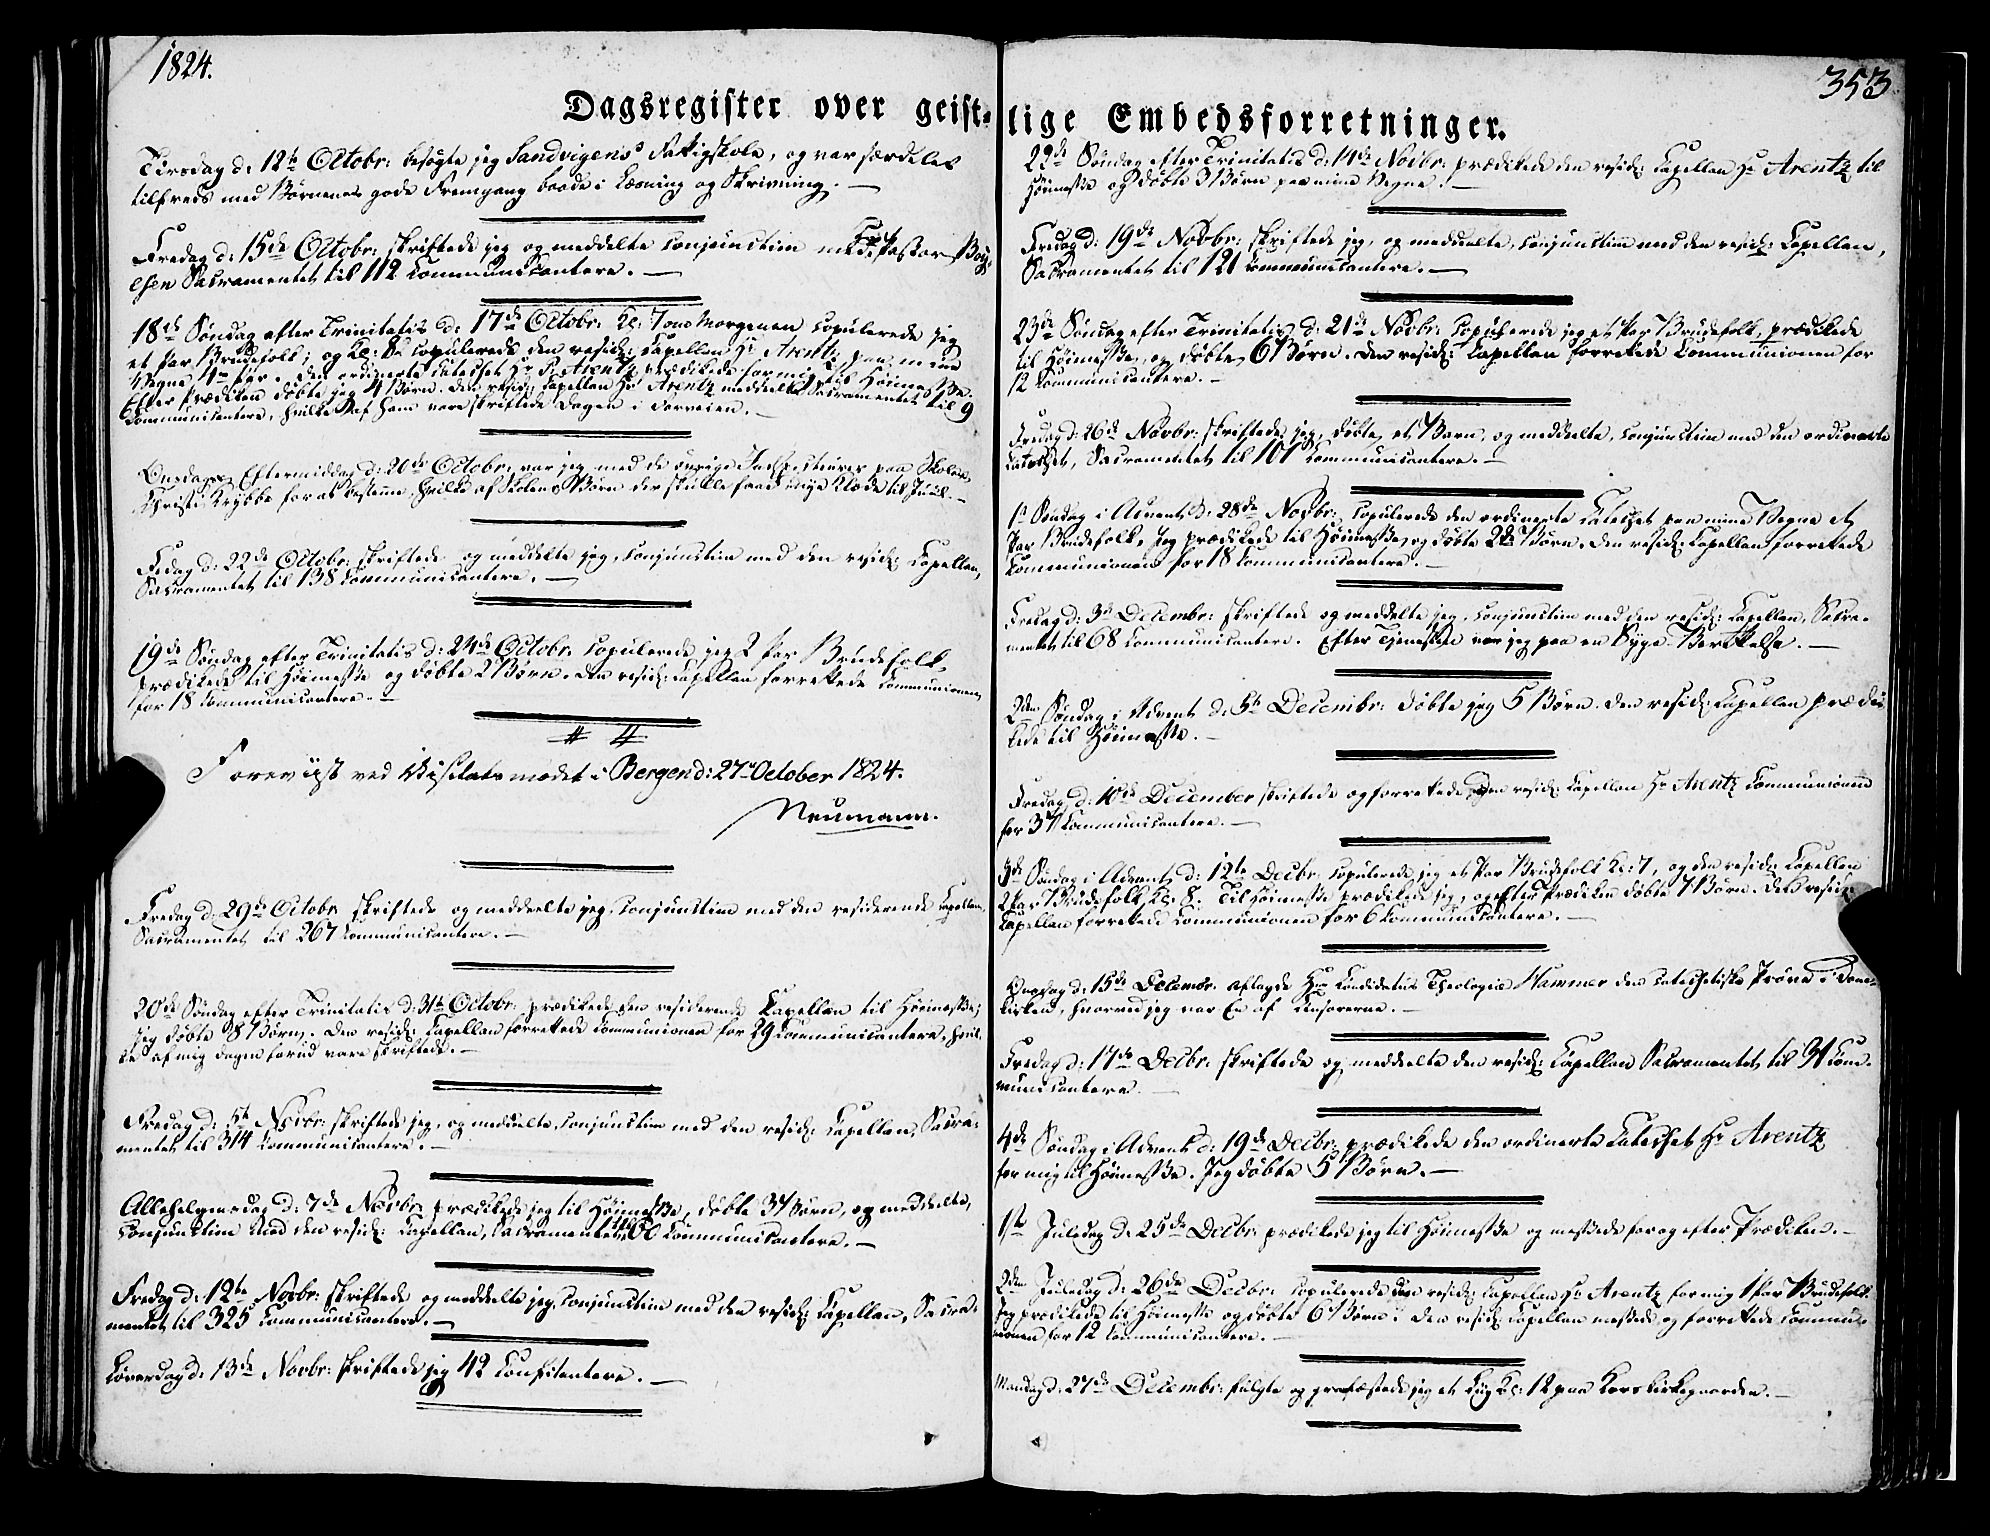 1824.
353.
Dagsregister over geist-lige Embedsforretninger.
Tirsdag d: 12te Octobr: besøgte jeg Sandvigens Fattigskole, og var særdeles
tilfreds med Børnenes gode Fremgang baade i Læsning og Skrivning. —
Fredag d: 15de Octobr: skriftede jeg og meddelte conjunctim med Pastor Boy-
esen Sacramentet til 112 Communicantere. —
18de Søndag efter Trinitatis d: 17de Octobr: Kl: 7 om Morgenen copulerede jeg
et Par Brudefolk, og Kl: 8 copulerede den resid: Capellan Hr Arentz paa mine
Vegne Par. Den ordinerte Catechet Hr Arentz prædikede for mig til Høimesse.
Efter Prædiken døbte jeg 4 Børn. Den resid: Capellan Hr Arentz meddelte Sacramentet til 9
Communicantere, hvilke af ham vare skriftede Dagen i Forveien. —
Onsdags Eftermiddag d: 20de Octobr: var jeg med de øvrige Inspecteurer paa Skolen
Christi Krybbe for at bestemme, hvilke af Skolens Børn der skulle faae nye Klæde til Juul. —
Fredag d: 22de Octobr: skriftede og meddelte jeg, conjunctim med den resid: Capellan,
Sacramentet til 138 Communicantere. —
19de Søndag efter Trinitatis d: 24de Octobr: copulerede jeg 2 Par Brudefolk,
prædikede til Høimesse og døbte 2 Børn. Den resid: Capellan forrettede Communionen
for 18 Communicantere. —
Foreviist ved Visitatsmødet i Bergen d: 27de October 1824.
Neumann.
Fredag d: 29de Octobr skriftede og meddeelte jeg, conjunctim med den residerende Capellan,
Sacramentet til 267 Communicantere. —
20de Søndag efter Trinitatis d: 31te Octobr: prædikede den residerende Capellan til Høimesse;
jeg døbte 8 Børn. Den resid: Capellan forrettede Communionen for 29 Communicantere, hvil-
ke af mig Dagen forud vare skriftede. —
Fredag d: 5te Novbr: skriftede jeg, og meddelte, conjunctim med den resid: Capellan, Sacra-
mentet til 314 Communicantere. —
Allehelgensdag d: 7de Novbr: prædikede jeg til Høimesse, døbte 3 Børn, og meddelte,
conjunctim med den resid: Capellan, Sacramentet til 60 Communicantere. —
Fredag d: 12te Novbr: skriftede og meddelte jeg, conjunctim med den resid: Capellan, Sacra-
mentet til 325 Communicantere. —
Løverdag d: 13de Novbr: skriftede jeg 42 Confitentere. —
22de Søndag efter Trinitatis d: 14de Novbr: prædikede den resid: Capellan Hr Arentz til
Høimesse og døbte 3 Børn paa mine Vegne. —
Fredag d: 19de Novbr: skriftede jeg, og meddeelte, conjunctim med den resid: Capellan,
Sacramentet til 121 Communicantere. —
23de Søndag efter Trinitatis d: 21de Novbr: copulerede jeg et Par Brudefolk, prædikede
til Høimesse, og døbte 6 Børn. Den resid: Capellan forrettede Communionen for
12 Communicantere. —
Fredag d: 26de Novbr: skriftede jeg, døbte et Barn, og meddeelte, conjunctim med den ordinerte
Catechet, Sacramentet til 101 Communicantere. —
1ste Søndag i Advent d: 28de Novbr: copulerede den ordinerte Catechet paa mine Vegne et
Par Brudefolk. Jeg prædikede til Høimesse, og døbte 2 Børn. Den resid: Capellan forrettede
Communionen for 18 Communicantere. —
Fredag d: 3de Decembr: skriftede og meddelte jeg, conjunctim med den resid: Capellan, Sacra-
mentet til 68 Communicantere. Efter Tjenesten var jeg paa en Syge-Berettelse. —
2den Søndag i Advent d: 5te Decembr: døbte jeg 5 Børn. Den resid: Capellan prædi-
kede til Høimesse. —
Fredag d: 10de December skriftede og forrettede den resid: Capellan Hr Arentz Communionen
for 37 Communicantere. —
3de Søndag i Advent d: 12te Decbr: copulerede jeg et Par Brudefolk Kl: 7, og den resid: Capellan
2 Par Brudefolk, Kl: 8. Til Høimesse prædikede jeg, og efter Prædiken døbte 7 Børn. Den resid:
Capellan forrettede Communionen for 6 Communicantere. —
Onsdag d: 15de Decembr: aflagde Hr Candidatus Theologiæ Hammer den catechetiske Prøve i Dom-
kirken, hvorved jeg var En af Censorerne. —
Fredag d: 17de Decbr: skriftede og meddeelte den resid: Capellan Sacramentet til 31 Com-
municantere.
4de Søndag i Advent d: 19de Decbr: prædikede den ordinerte Catechet Hr Arentz
for mig til Høimesse. Jeg døbte 5 Børn. —
1ste Juledag d: 25de Decbr: prædikede jeg til Høimesse og messede for og efter Prædiken. —
2den Juledag d: 26de Decbr: copulerede den resid: Capellan Hr Arentz for mig 1 Par Brudefolk.
Jeg prædikede til Høimesse og døbte 6 Børn. Den resid: Capellan messede og forrettede Commu-
nionen for 12 Communicantere. —
Mandag d: 27de Decembr: fulgte og jordfæstede jeg et Liig Kl: 12 paa Korskirkegaarden. —